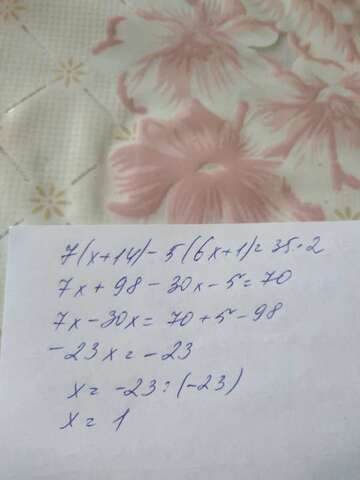 7(x+14)-5(6x+1)=35·2
7x+98-30x-5=70
7x-30x=70+5-98
-23x=-23
x=-23:(-23)
x=1